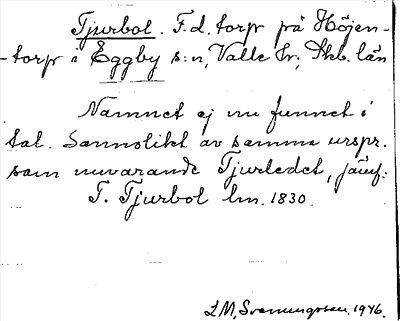 Tjurbol. F.d. torp på Höjen-
-torp i Eggby s:n, Valle hr; Skb. län
Namnet ej nu funnet i
tal. Sannolikt av samma urspr.
som nuvarande Tjurledet, jämf.
T. Tjurbol lm. 1830.
L M, Svenungsson. 1946.